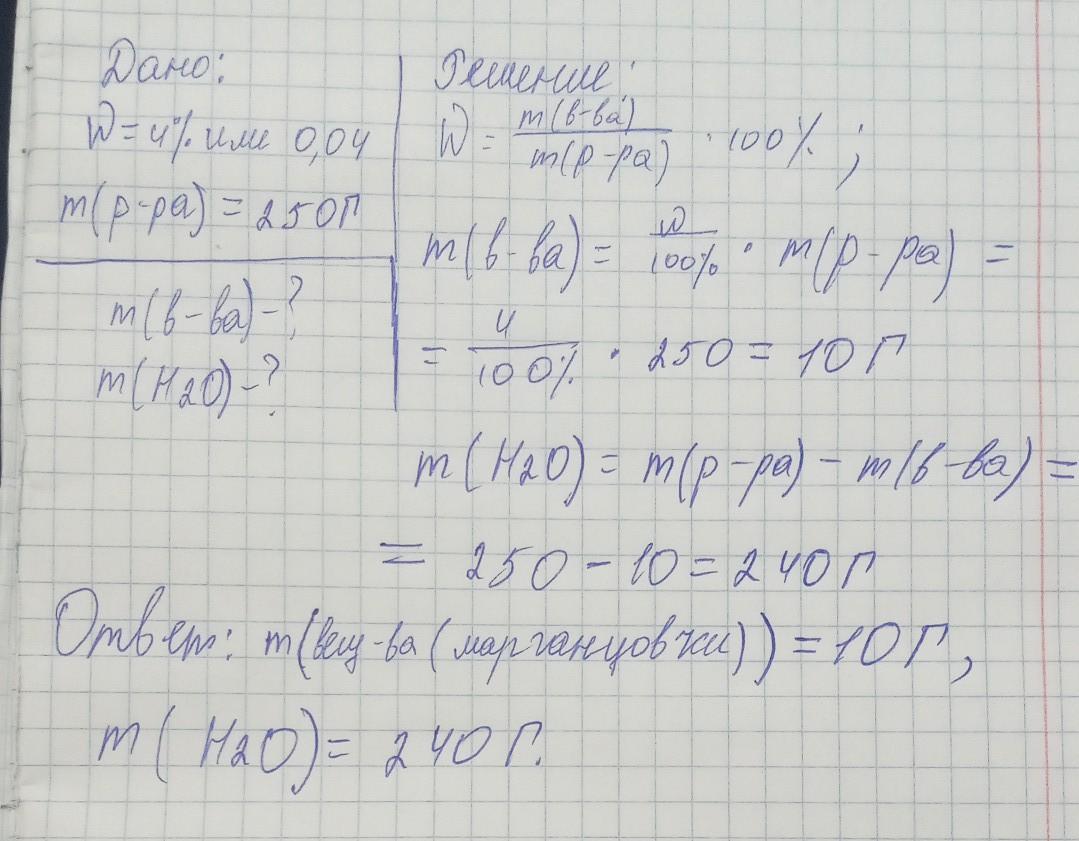 Дано:
W = 4% или 0,04
m(р-ра) = 250г
m(в-ва) - ?
m(H2O) - ?
Решение:
W = m(в-ва) / m(р-ра) · 100% ;
m(в-ва) = W / 100% · m(р-ра) =
= 4 / 100% · 250 = 10 г
m(H2O) = m(р-ра) - m(в-ва) =
= 250 - 10 = 240 г
Ответ: m(вещ-ва (марганцовки)) = 10 г,
m(H2O) = 240 г.